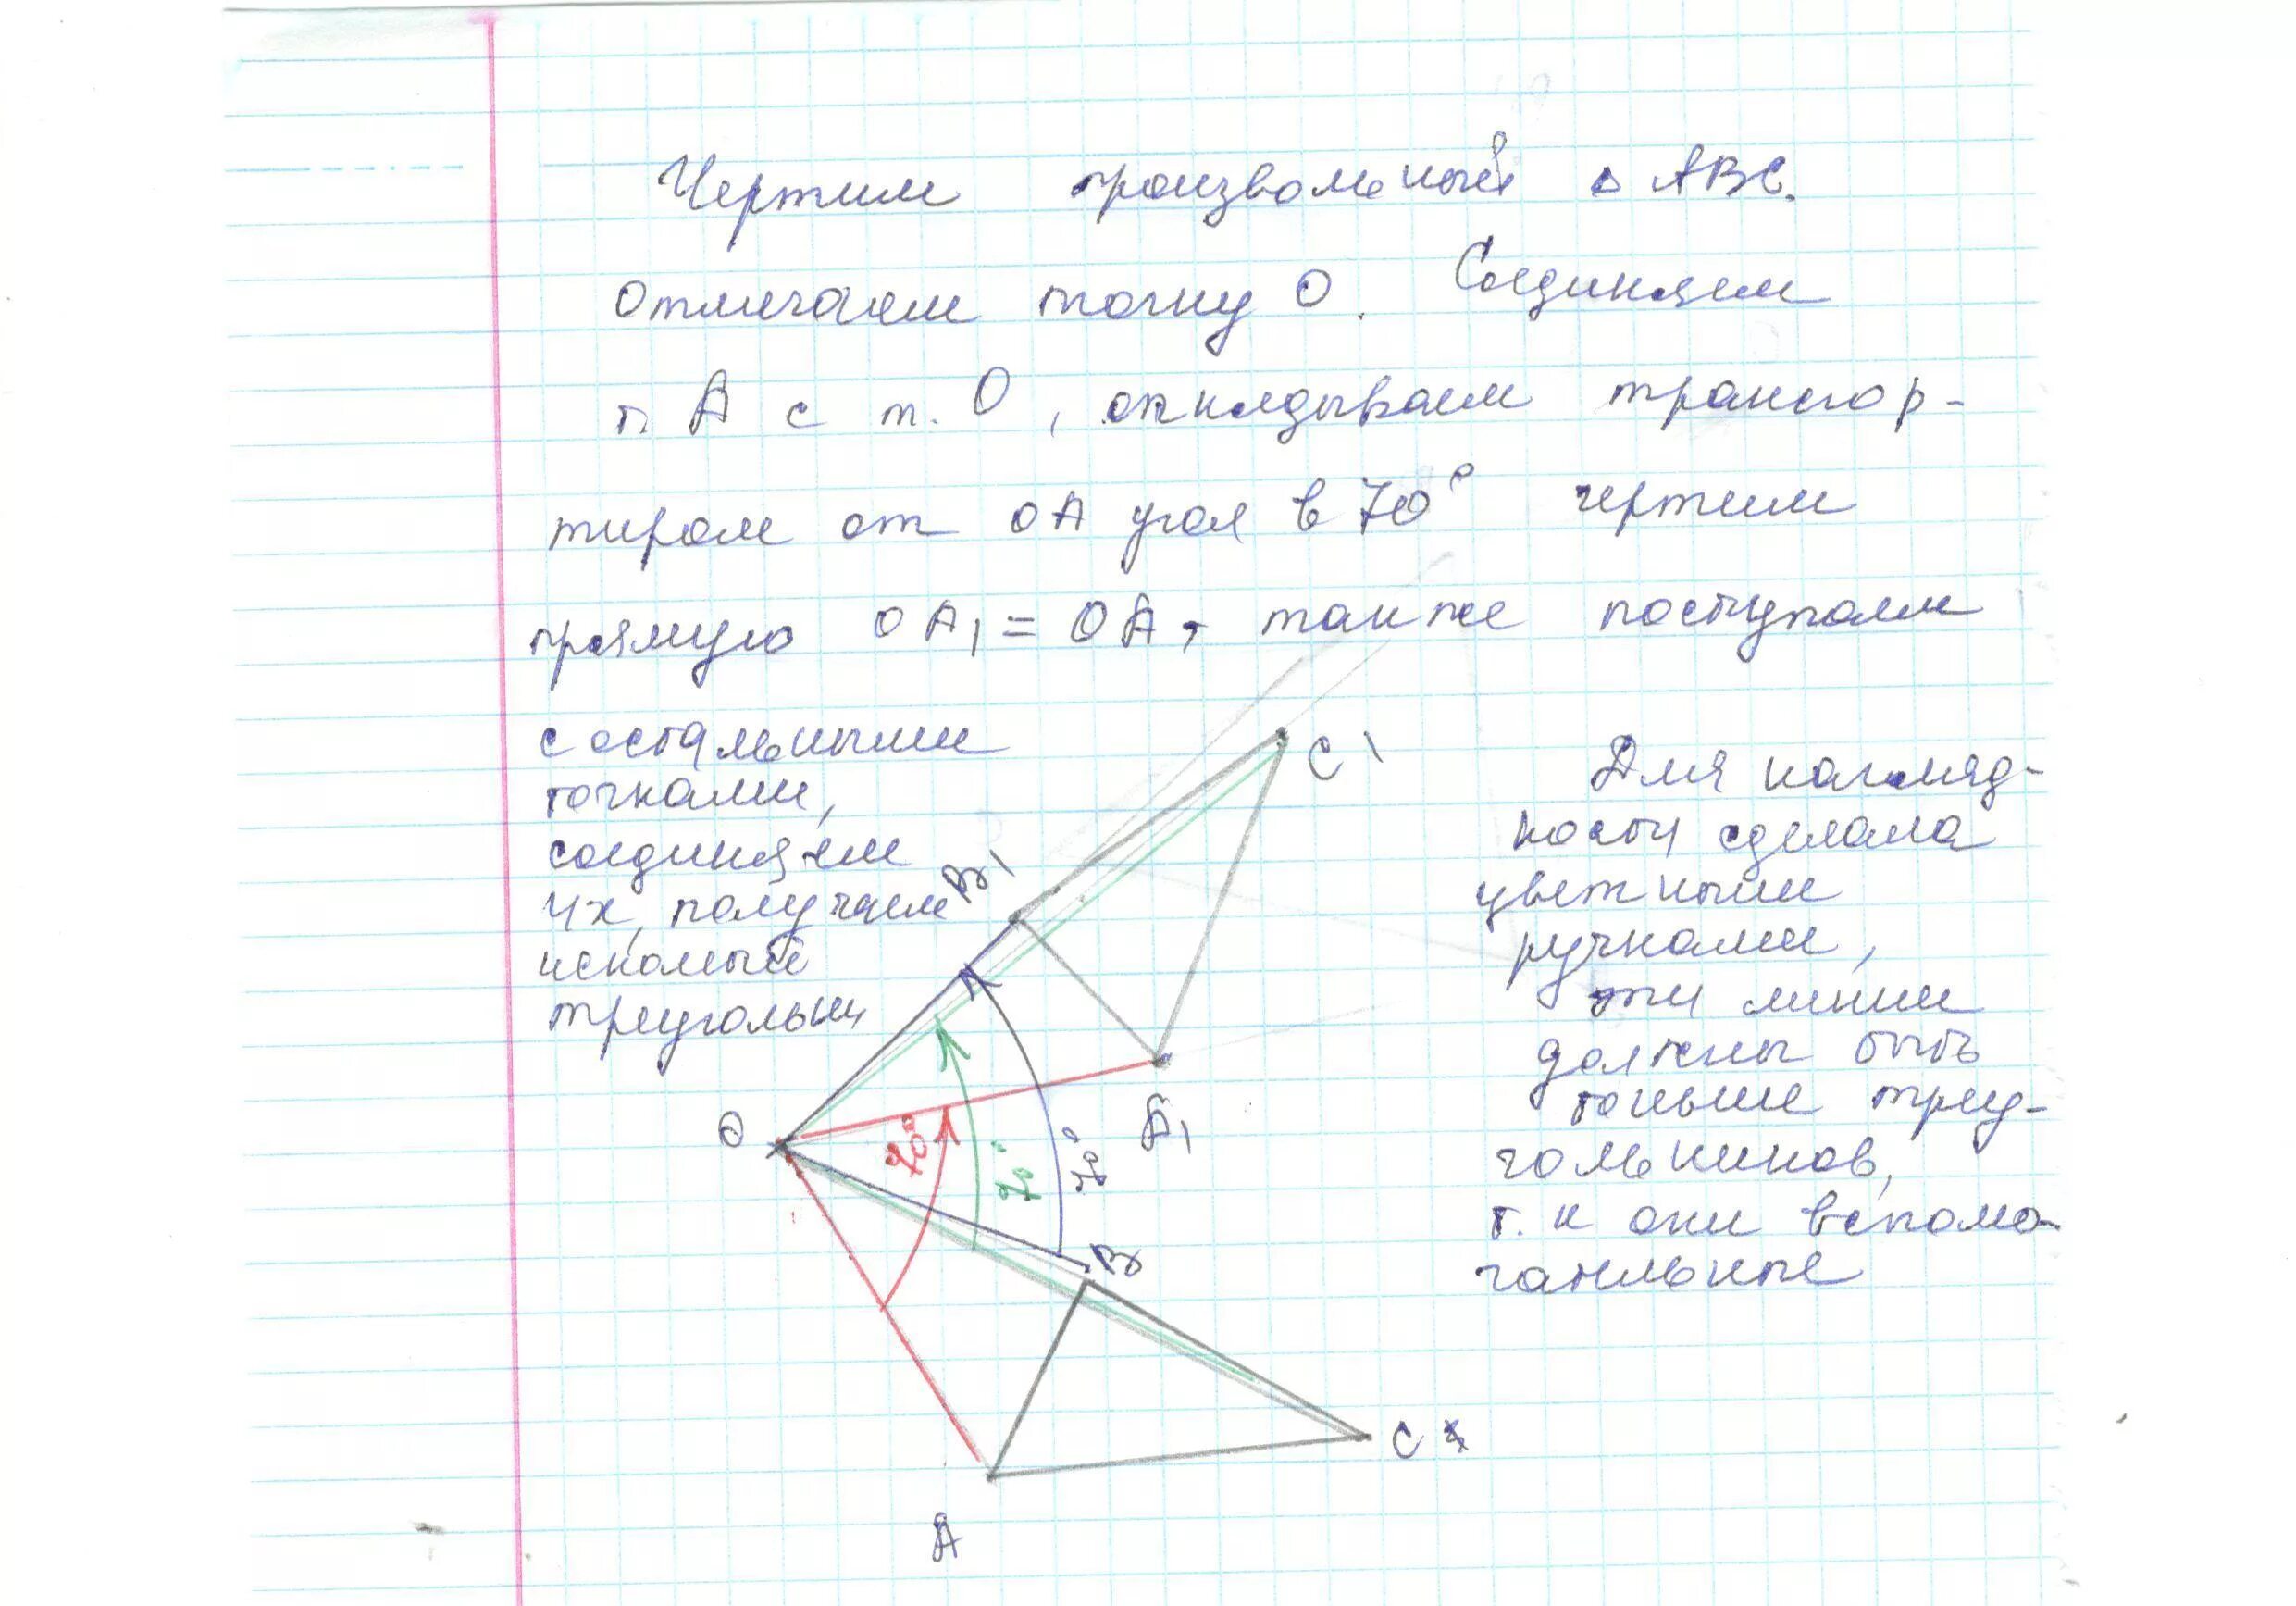 Чертим произвольный △ ABC.
отмечаем точку O. Соединяем
т. A с т. O, откладываем транспор-
тиром от OA угол в 70° чертим
прямую OA1 = OA, также поступаем
с остальными
точками,
соединяем
их, получаем
искомый
треугольн
Для нагляд-
ности сделала
цветными
ручками,
эти линии
должны быть
тоньше треу-
гольников,
т. к они вспомо-
гательные
C1
B1
A1
O
70°
70°
70°
B
C
A